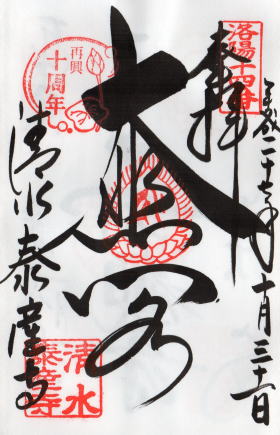 洛陽十四番
平成二十七年十月三十一日
奉拝
大悲閣
再興
十周年
清水泰産寺
清水
泰産寺